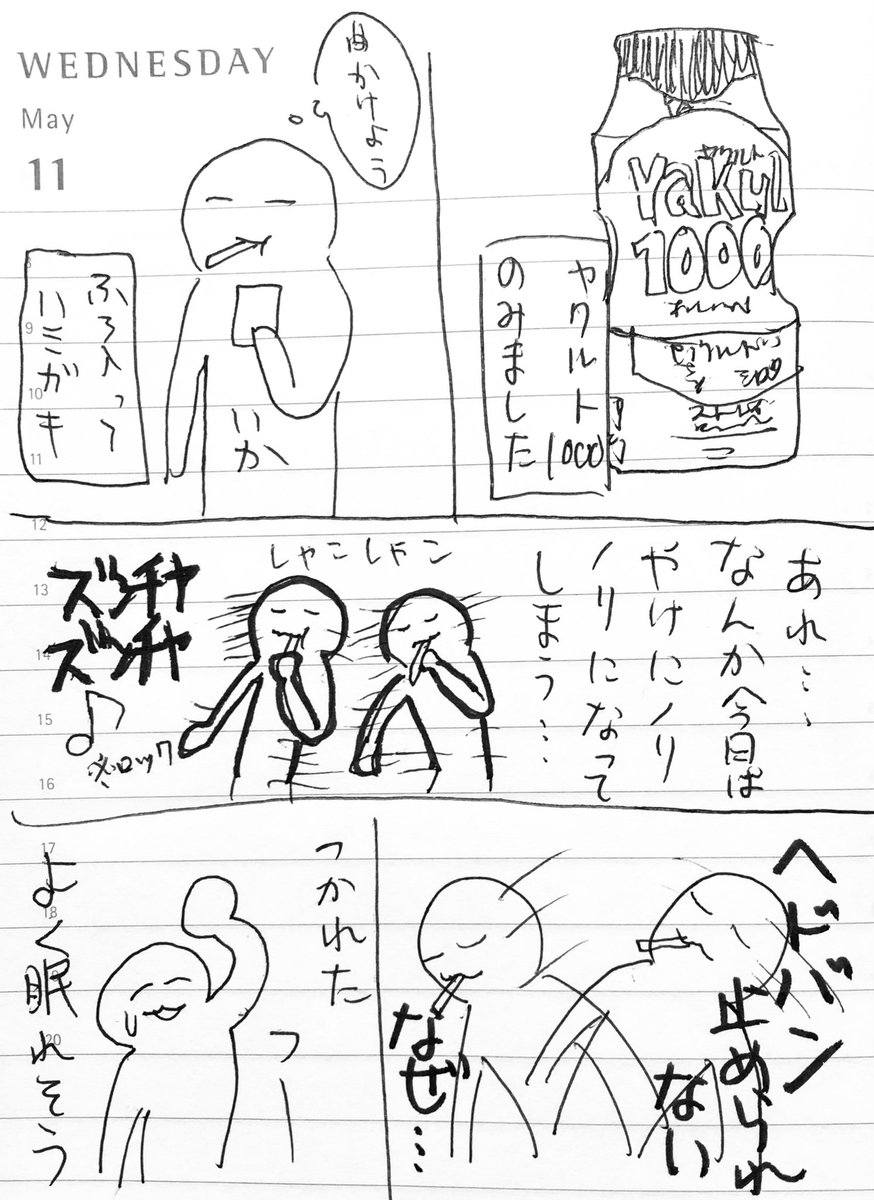 WEDNESDAY
May
11
ヤクルト
Yakul
1000
ヤクルト1000
のみました
曲かけよう
ふろ入って
ハミガキ
いか
8
9
10
11
12
あれ…
なんか今日は
やけにノリ
ノリになって
しまう…
しゃこしゃこ
ズンチャ
ズンチャ
♪
※ロック
13
14
15
16
ヘドバン
止められ
ない
なぜ…
つかれた
っ
よく眠れそう
17
18
20